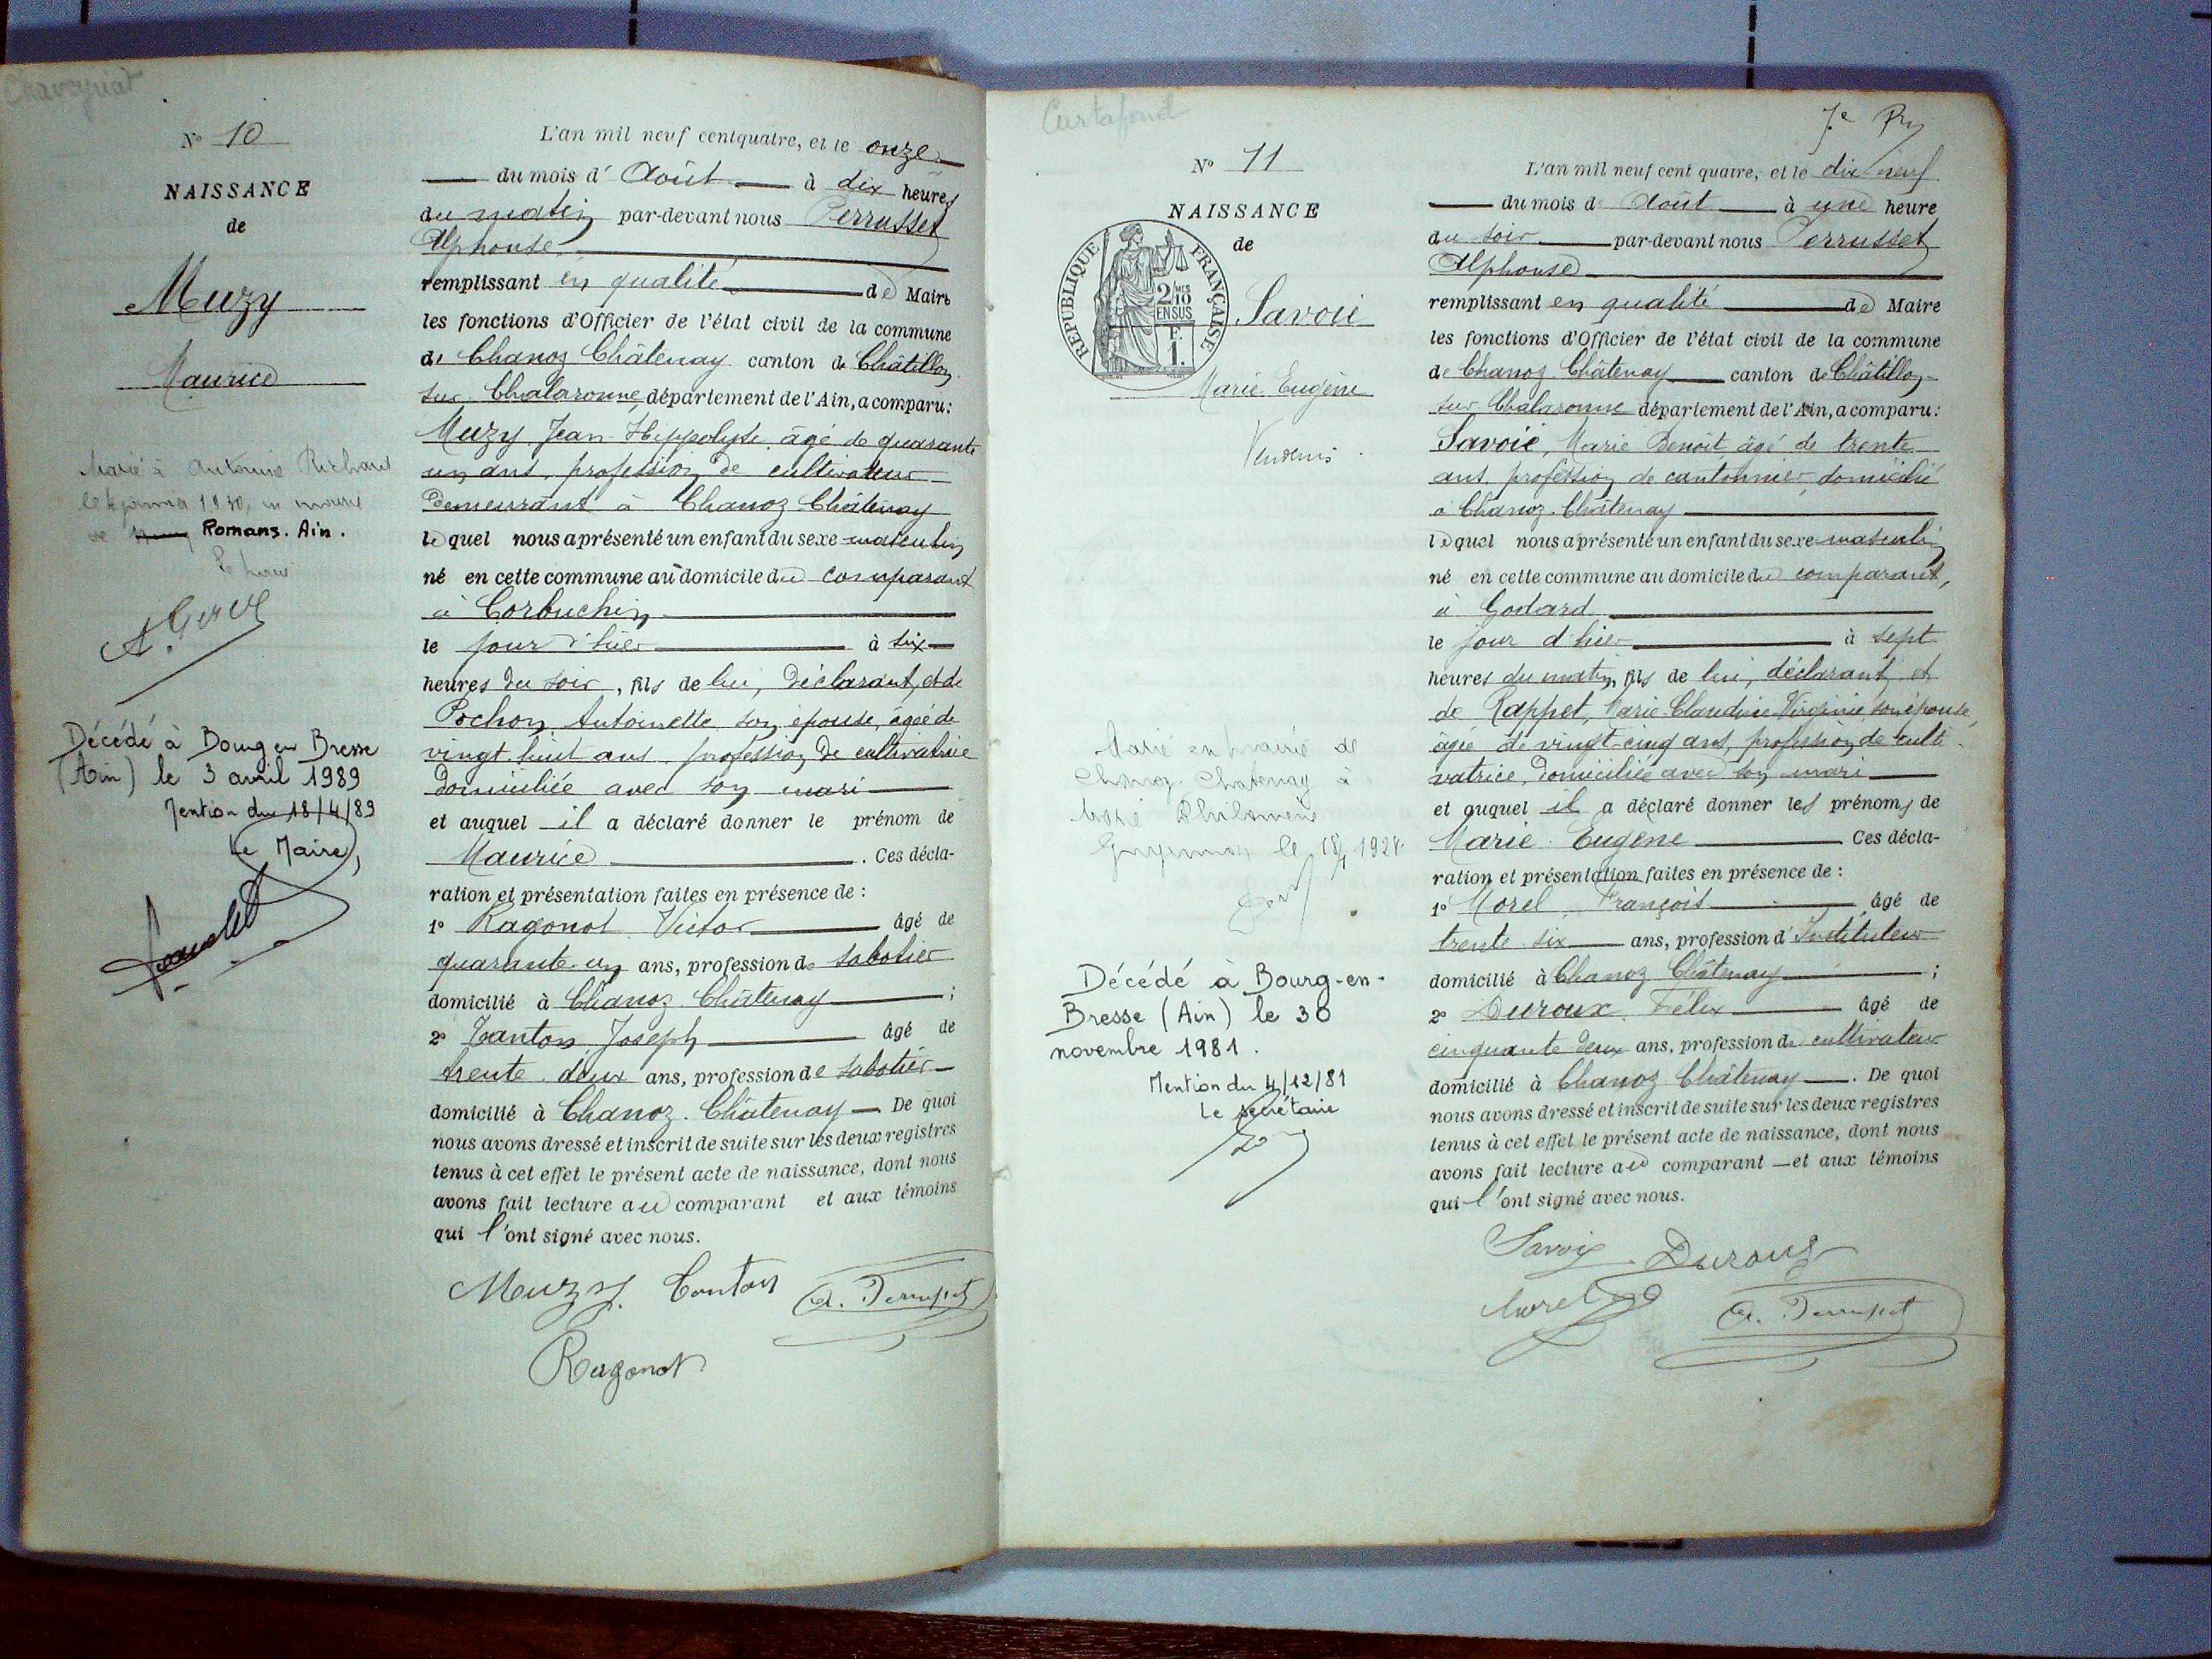 Chaveyriat
N° 10
NAISSANCE
de
Muzy
Maurice
Marié à Antonie
1930, en mairie
de Romans. Ain.
Le Maire
Décédé à Bourg en Bresse
(Ain) le 3 avril 1989
Mention du 18/4/89
Le Maire,
L'an mil neuf cent quatre, et le onze
du mois d'Août à dix heures
du matin par-devant nous Perrusset
Alphonse
remplissant en qualité de Maire
les fonctions d'Officier de l'état civil de la commune
de Chanoz Châtenay canton de Châtillon
sur Chalaronne, département de l'Ain, a comparu:
Muzy Jean-Hippolyte âgé de quarante
un ans, profession de cultivateur
demeurant à Chanoz Châtenay
lequel nous a présenté un enfant du sexe masculin
né en cette commune au domicile du comparant
à Corbuchin
le jour d'hier à six
heures du soir, fils de lui, déclarant, et de
Pochon Antoinette son épouse, âgée de
vingt huit ans profession de cultivatrice
domiciliée avec son mari
et auquel il a déclaré donner le prénom de
Maurice. Ces décla-
ration et présentation faites en présence de :
1° Ragonot Victor âgé de
quarante-un ans, profession de sabotier
domicilié à Chanoz Châtenay ;
2° Tanton Joseph âgé de
trente deux ans, profession de sabotier
domicilié à Chanoz. Châtenay De quoi
nous avons dressé et inscrit de suite sur les deux registres
tenus à cet effet le présent acte de naissance, dont nous
avons fait lecture au comparant et aux témoins
qui l'ont signé avec nous.
Muzy Tanton A. Perrusset
Ragonot
Curtafond
N° 11
NAISSANCE
de
REPUBLIQUE FRANÇAISE
2/10 MES
EN SUS
F.
1.
Savoie
Marie Eugène
Marié en mairie de
Chanoz-Chatenay à
Marie Philomène
le 1924
Décédé à Bourg-en-
Bresse (Ain) le 30
novembre 1981.
Mention du 4/12/81
Le secrétaire
7e
L'an mil neuf cent quatre, et le dix neuf
du mois d'Août à une heure
du soir par-devant nous Perrusset
Alphonse
remplissant en qualité de Maire
les fonctions d'Officier de l'état civil de la commune
de Chanoz Châtenay canton de Châtillon
sur Chalaronne département de l'Ain, a comparu:
Savoie, Marie Benoît, âgé de trente
ans, profession de cantonnier, domicilié
à Chanoz-Châtenay
lequel nous a présenté un enfant du sexe masculin
né en cette commune au domicile du comparant,
à Godard
le jour d'hier à sept
heures du matin, fils de lui, déclarant, et
de Rappet, Marie-Claudine-Virginie, son épouse,
âgée de vingt-cinq ans, profession de culti-
vatrice, domiciliée avec son mari
et auquel il a déclaré donner les prénoms de
Marie Eugène Ces décla-
ration et présentation faites en présence de :
1° Morel, François âgé de
trente six ans, profession d'Instituteur
domicilié à Chanoz Châtenay ;
2° Duroux Félix âgé de
cinquante deux ans, profession de cultivateur
domicilié à Chanoz Châtenay. De quoi
nous avons dressé et inscrit de suite sur les deux registres
tenus à cet effet le présent acte de naissance, dont nous
avons fait lecture au comparant et aux témoins
qui l'ont signé avec nous.
Savoie Duroux
Morel A. Perrusset